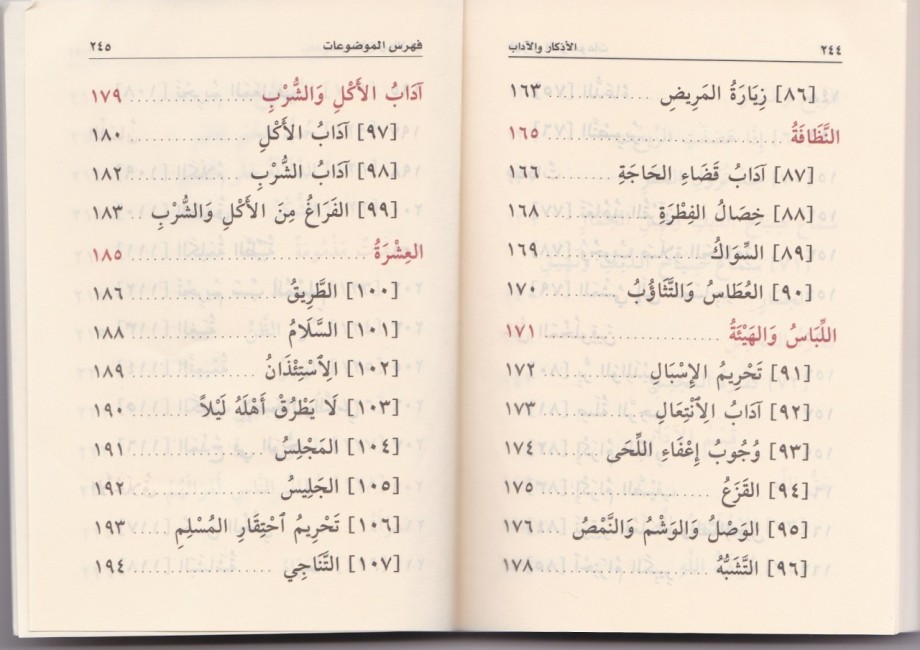 ٢٤٤ الأذكار والآداب
[٨٦] زِيَارَةُ المَرِيضِ ........ ١٦٣
النَّظَافَةُ ........ ١٦٥
[٨٧] آدَابُ قَضَاءِ الحَاجَةِ ........ ١٦٦
[٨٨] خِصَالُ الفِطْرَةِ ........ ١٦٨
[٨٩] السِّوَاكُ ........ ١٦٩
[٩٠] العُطَاسُ وَالتَّثَاؤُبُ ........ ١٧٠
اللِّبَاسُ وَالهَيْئَةُ ........ ١٧١
[٩١] تَحْرِيمُ الإِسْبَالِ ........ ١٧٢
[٩٢] آدَابُ الِٱنْتِعَالِ ........ ١٧٣
[٩٣] وُجُوبُ إِعْفَاءِ اللِّحَى ........ ١٧٤
[٩٤] القَزَعُ ........ ١٧٥
[٩٥] الوَصْلُ وَالوَشْمُ وَالنَّمْصُ ........ ١٧٦
[٩٦] التَّشَبُّهُ ........ ١٧٨
فهرس الموضوعات ٢٤٥
آدَابُ الأَكْلِ وَالشُّرْبِ ........ ١٧٩
[٩٧] آدَابُ الأَكْلِ ........ ١٨٠
[٩٨] آدَابُ الشُّرْبِ ........ ١٨٢
[٩٩] الفَرَاغُ مِنَ الأَكْلِ وَالشُّرْبِ ........ ١٨٣
العِشْرَةُ ........ ١٨٥
[١٠٠] الطَّرِيقُ ........ ١٨٦
[١٠١] السَّلَامُ ........ ١٨٨
[١٠٢] الِٱسْتِئْذَانُ ........ ١٨٩
[١٠٣] لَا يَطْرُقُ أَهْلَهُ لَيْلاً ........ ١٩٠
[١٠٤] المَجْلِسُ ........ ١٩١
[١٠٥] الجَلِيسُ ........ ١٩٢
[١٠٦] تَحْرِيمُ ٱحْتِقَارِ المُسْلِمِ ........ ١٩٣
[١٠٧] التَّنَاجِي ........ ١٩٤